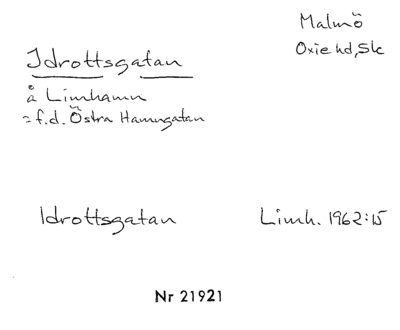 Malmö
Oxie hd, Sk
Idrottsgatan
å Limhamn
= f.d. Östra Hamngatan
Idrottsgatan Limh. 1962:15
Nr 21921